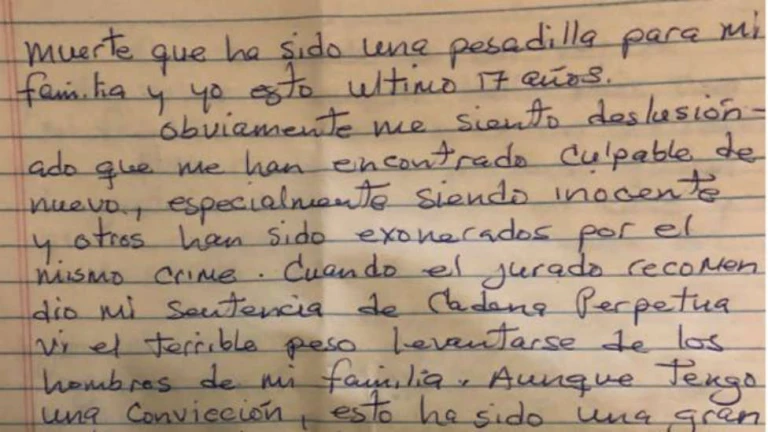 muerte que ha sido una pesadilla para mi
familia y yo esto ultimo 17 años.
obviamente me siento deslusión-
ado que me han encontrado culpable de
nuevo, especialmente siendo inocente
y otros han sido exonerados por el
mismo crime. Cuando el jurado recomen
dio mi sentencia de Cadena Perpetua
vi el terrible peso levantarse de los
hombres de mi familia. Aunque tengo
una convicción, esto ha sido una gran